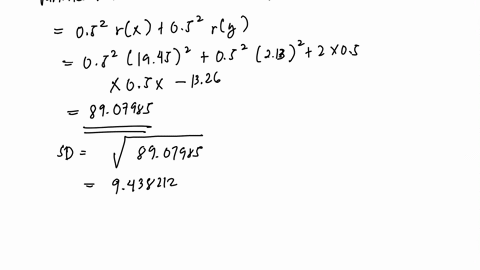 = 0.5² r(x) + 0.5² r(y)
= 0.5² (19.45)² + 0.5² (2.13)² + 2 × 0.5
× 0.5 × - 13.26
= 89.07985
SD = √89.07985
= 9.438212